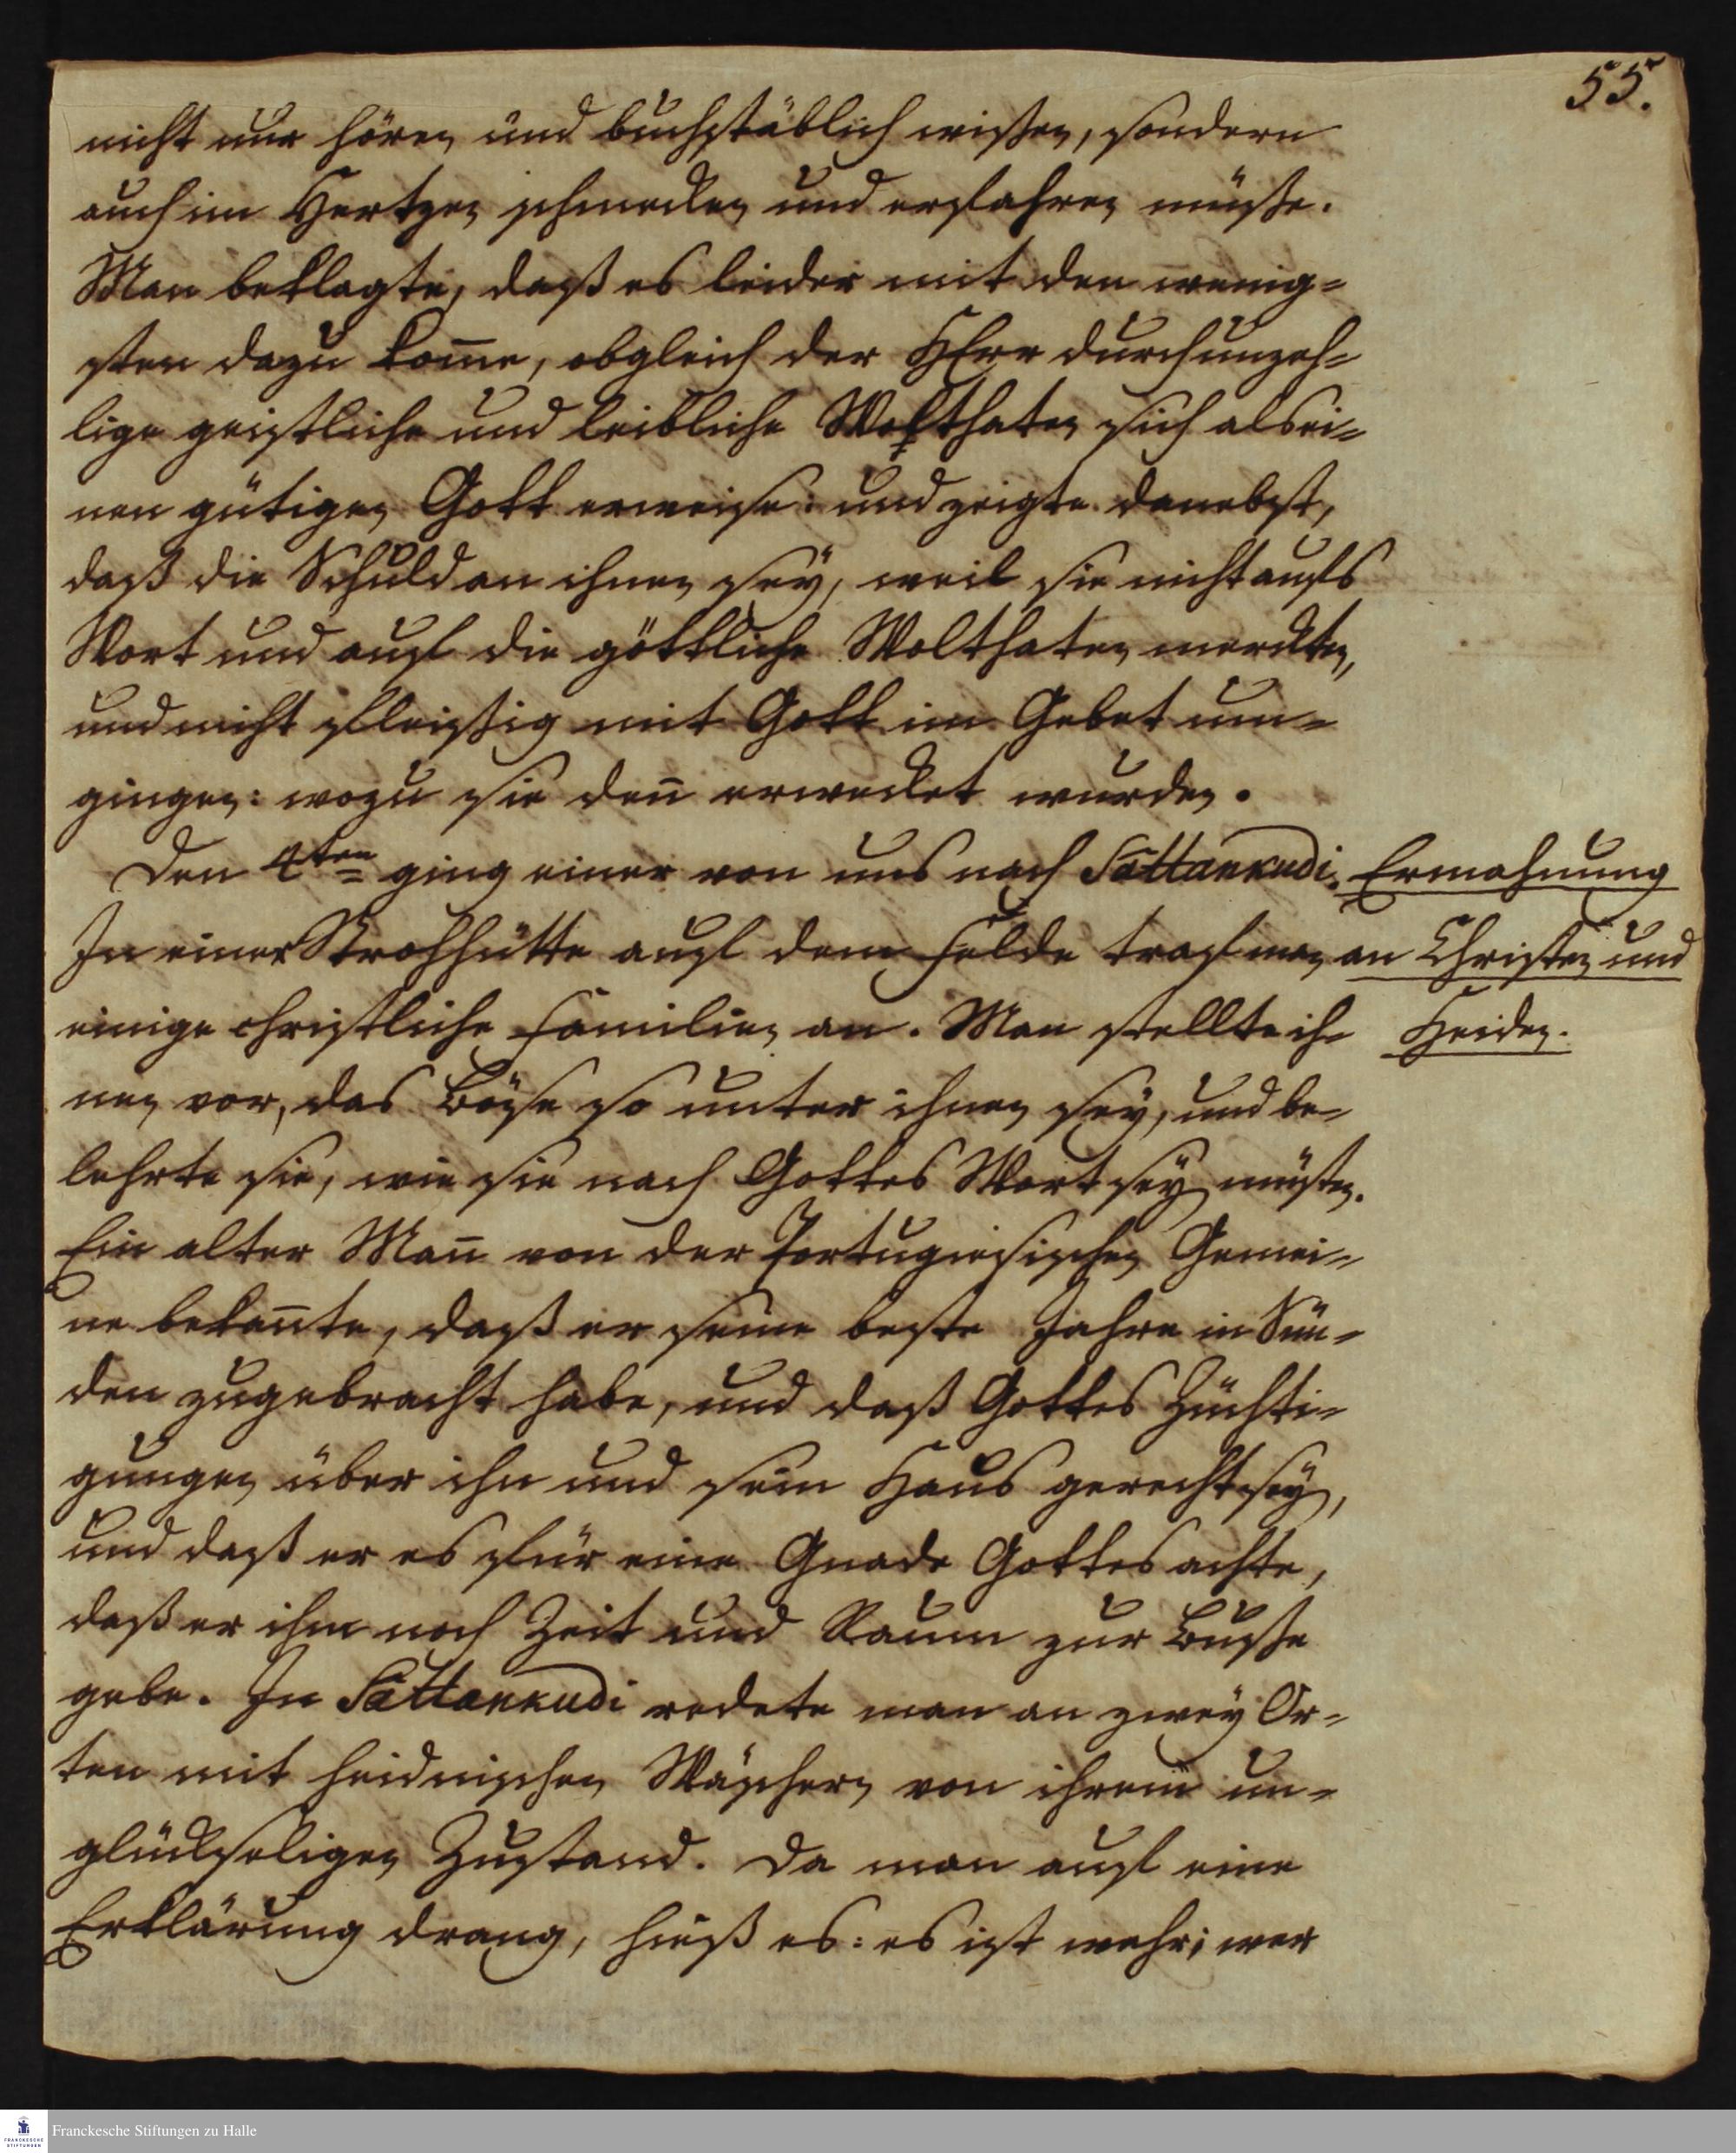 55.
nicht nur hören und buchstäblich wißen, sondern
auch im Hertzen schmecken und erfahren müße.
Man beklagte, daß es leider mit den wenig-
sten dazu kom̅e, obgleich der HErr durch unzeh-
lige geistliche und leibliche Wolthaten sich als ei-
nen gütigen Gott erweise: und zeigte danebst,
daß die Schuld an ihnen sey, weil sie nicht aufs
Wort und auf die göttliche Wolthaten merckten,
und nicht fleißig mit Gott im Gebet um-
gingen: wozu sie den̅ erwecket wurden.
Den 4ten ging einer von uns nach Sâttankudi.
Ermahnung
an Christen und
Heiden.
In einer Strohhütte auf dem Felde traf man
einige christliche Familien an. Man stellte ih-
nen vor, das Böse so unter ihnen sey, und be-
lehrte sie, wie sie nach Gottes Wort seyn müsten.
Ein alter Man̅ von der Portugiesischen Gemei-
ne bekan̅te, daß er seine beste Jahre in Sün-
den zugebracht habe, und daß Gottes Züchti-
gungen über ihn und sein Haus gerecht seyn,
und daß er es für eine Gnade Gottes achte,
daß er ihm noch Zeit und Raum zur Buße
gebe. In Sâttankudi redete man an zwey Or-
ten mit heidnischen Wäschern von ihrem un-
glückseligen Zustand. Da man auf eine
Erklärung drang, hieß es: es ist wahr; wer
FRANCKESCHE
STIFTUNGEN
Franckesche Stiftungen zu Halle